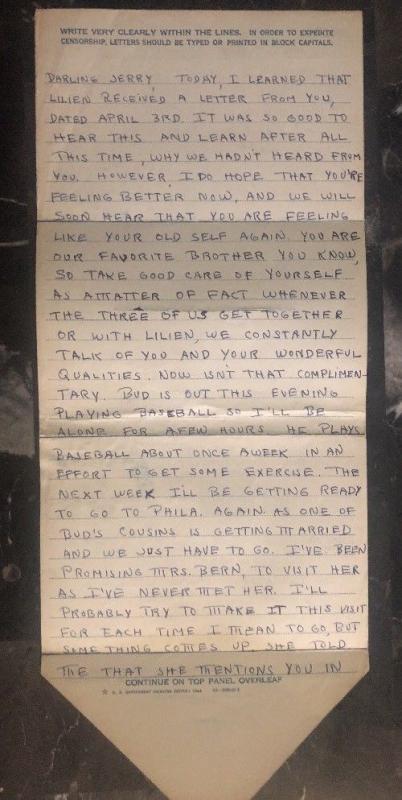 WRITE VERY CLEARLY WITHIN THE LINES. IN ORDER TO EXPEDITE
CENSORSHIP, LETTERS SHOULD BE TYPED OR PRINTED IN BLOCK CAPITALS.
DARLING JERRY, TODAY, I LEARNED THAT
LILIEN RECEIVED A LETTER FROM YOU,
DATED APRIL 3RD. IT WAS SO GOOD TO
HEAR THIS AND LEARN AFTER ALL
THIS TIME, WHY WE HADN'T HEARD FROM
YOU. HOWEVER I DO HOPE THAT YOU'RE
FEELING BETTER NOW, AND WE WILL
SOON HEAR THAT YOU ARE FEELING
LIKE YOUR OLD SELF AGAIN. YOU ARE
OUR FAVORITE BROTHER YOU KNOW,
SO TAKE GOOD CARE OF YOURSELF
AS A MATTER OF FACT WHENEVER
THE THREE OF US GET TOGETHER
OR WITH LILIEN, WE CONSTANTLY
TALK OF YOU AND YOUR WONDERFUL
QUALITIES. NOW ISN'T THAT COMPLIMEN-
TARY. BUD IS OUT THIS EVENING
PLAYING BASEBALL SO I'LL BE
ALONE FOR A FEW HOURS. HE PLAYS
BASEBALL ABOUT ONCE A WEEK IN AN
EFFORT TO GET SOME EXERCISE. THE
NEXT WEEK I'LL BE GETTING READY
TO GO TO PHILA. AGAIN AS ONE OF
BUD'S COUSINS IS GETTING MARRIED
AND WE JUST HAVE TO GO. I'VE BEEN
PROMISING MRS. BERN, TO VISIT HER
AS I'VE NEVER MET HER. I'LL
PROBABLY TRY TO MAKE IT THIS VISIT
FOR EACH TIME I MEAN TO GO, BUT
SOMETHING COMES UP. SHE TOLD
ME THAT SHE MENTIONS YOU IN
CONTINUE ON TOP PANEL OVERLEAF
U. S. GOVERNMENT PRINTING OFFICE